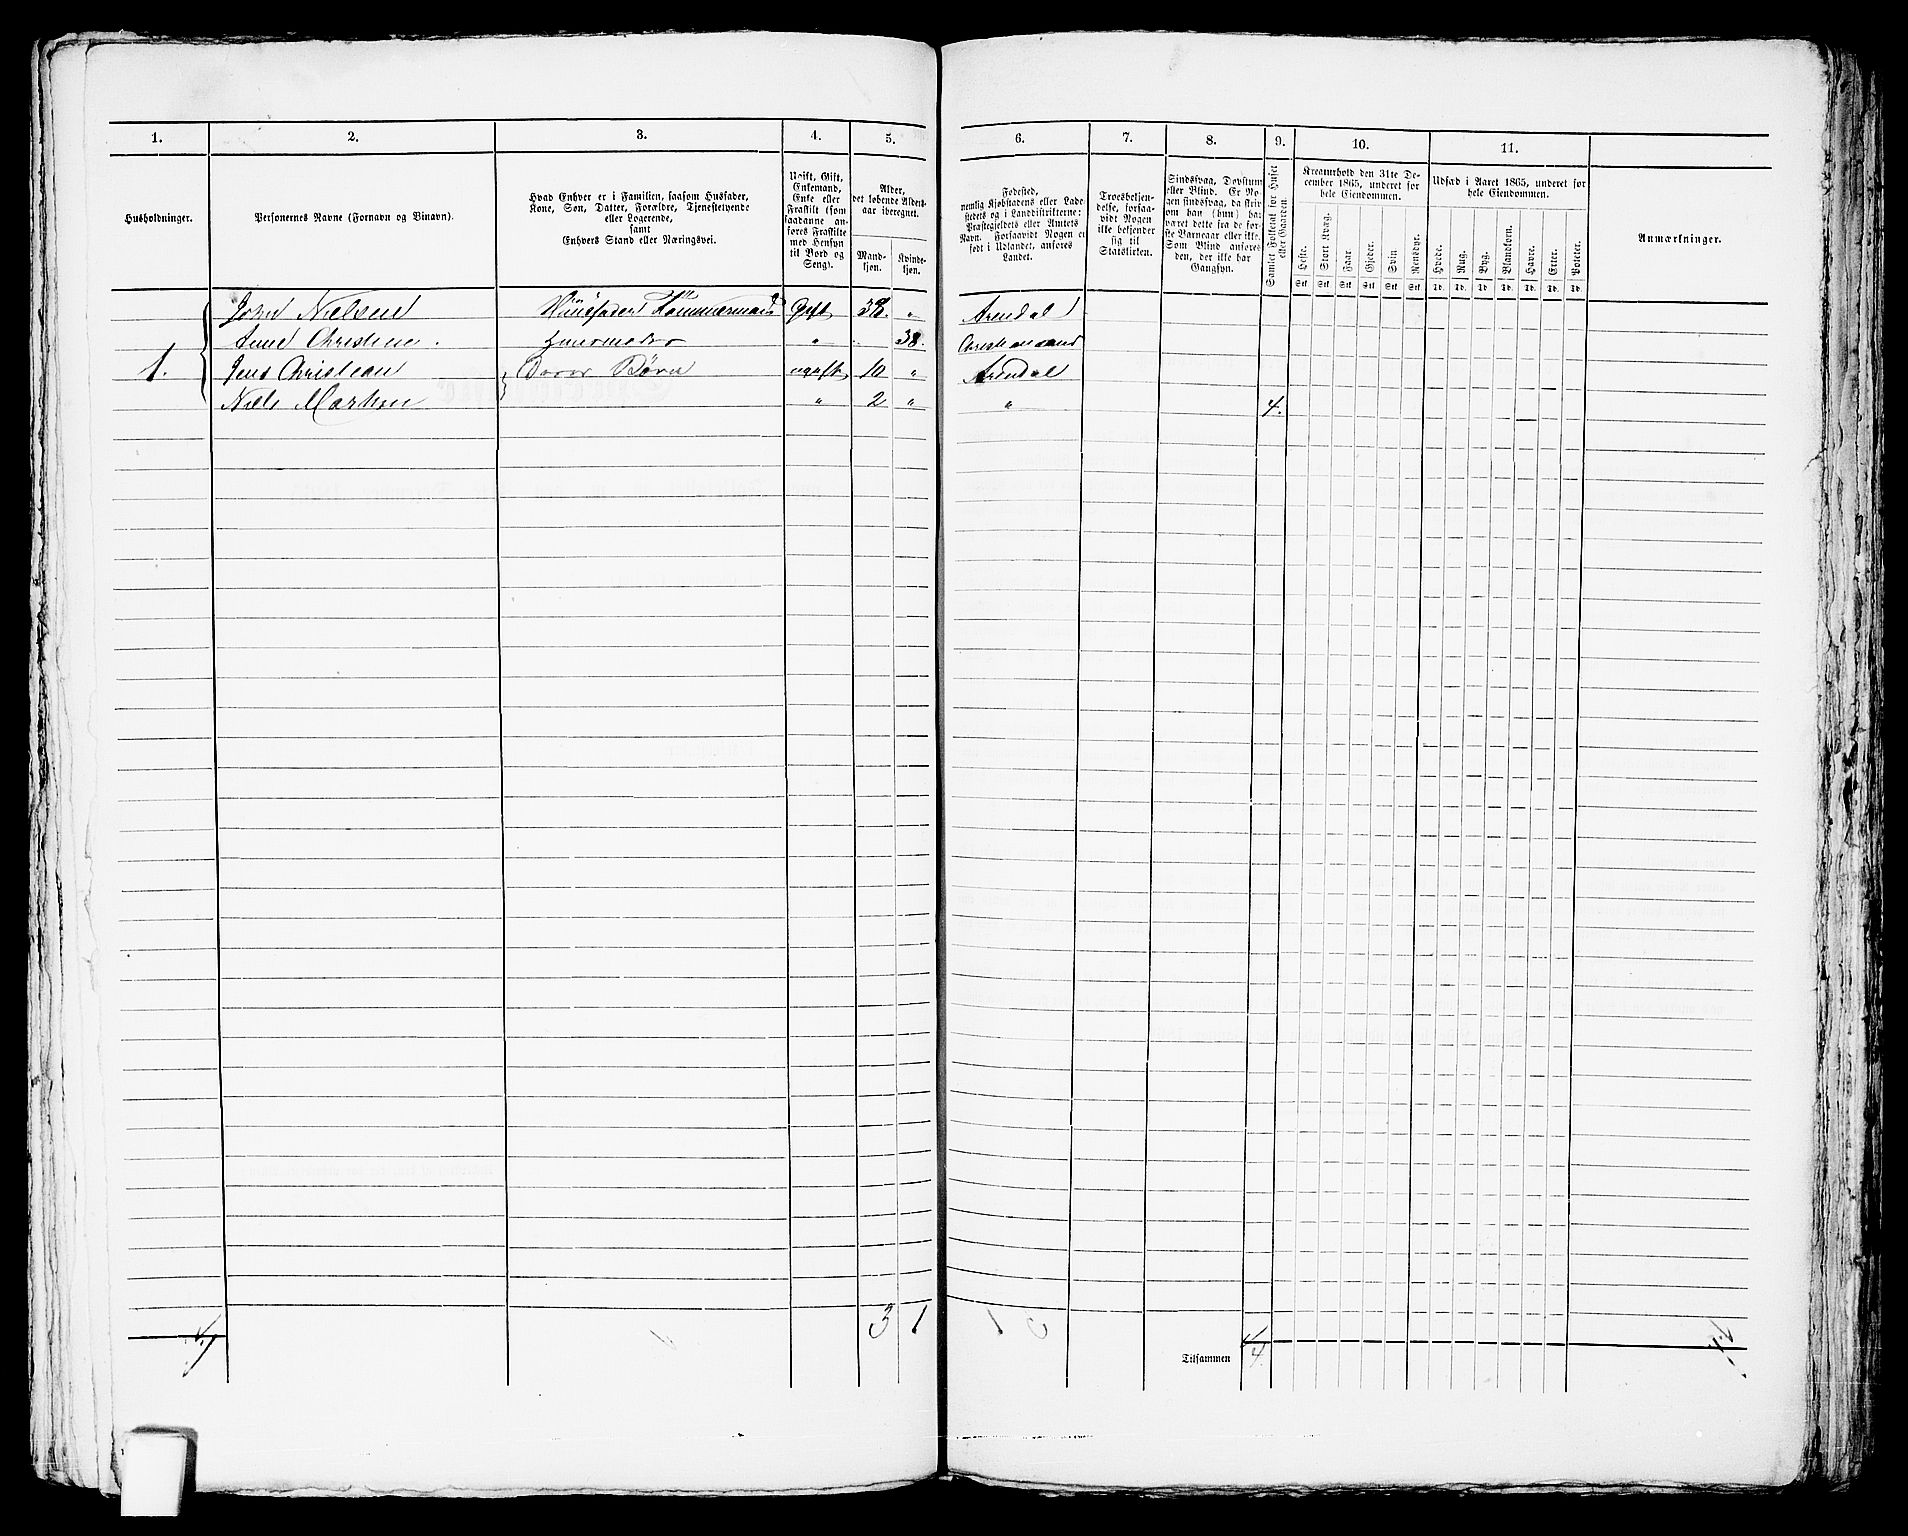 1. 2. 3. 4. 5. 6. 7. 8. 9. 10. 11.
Husholdninger.
Personernes Navne (Fornavn og Binavn).
Hvad Enhver er i Familien, saasom Husfader,
Kone, Søn, Datter, Forældre, Tjenestetyende
eller Logerende,
samt
Enhvers Stand eller Næringsvei.
Ugift, Gift,
Enkemand,
Enke eller
Fraskilt (som
saadanne an-
føres Fraskilte
med Hensyn
til Bord og
Seng).
Alder,
det løbende Alders-
aar iberegnet.
Mand-
kjøn.
Kvinde-
kjøn.
Fødested,
nemlig Kjøbstadens eller Lade-
stedets og i Landdistrikterne:
Præstegjeldets eller Amtets
Navn. Forsaavidt Nogen er
født i Udlandet, anføres
Landet.
Troesbekjen-
delse, forsaa-
vidt Nogen
ikke bekjender
sig til
Statskirken.
Sindssvag, Døvstum
eller Blind. Er No-
gen sindssvag, da skriv
om han (hun) har
været dette fra de før-
ste Barneaar eller ikke.
Som Blind anføres
den, der ikke har
Gangsyn.
Samlet Folketal for Huset
eller Gaarden.
Kreaturhold den 31te De-
cember 1865, underet for
hele Eiendommen.
Heste.
Stort Kvæg.
Faar
Gjeder.
Svin
Rensdyr.
Stk. Stk. Stk. Stk. Stk. Stk.
Udsæd i Aaret 1865, underet for
hele Eiendommen.
Hvede.
Rug.
Byg.
Blandkorn.
Havre.
Erter.
Poteter.
Td. Td. Td. Td. Td. Td. Td.
Anmærkninger.
John Nielsen Huusfader Tømmermand Gift 38. " Arendal
Anne Christine Huusmoder " 38. Christiansand
1. Jens Christian Deres Børn ugift 10 " Arendal
Niels Martin " 2 " " 4.
4 3 1
Tilsammen 4